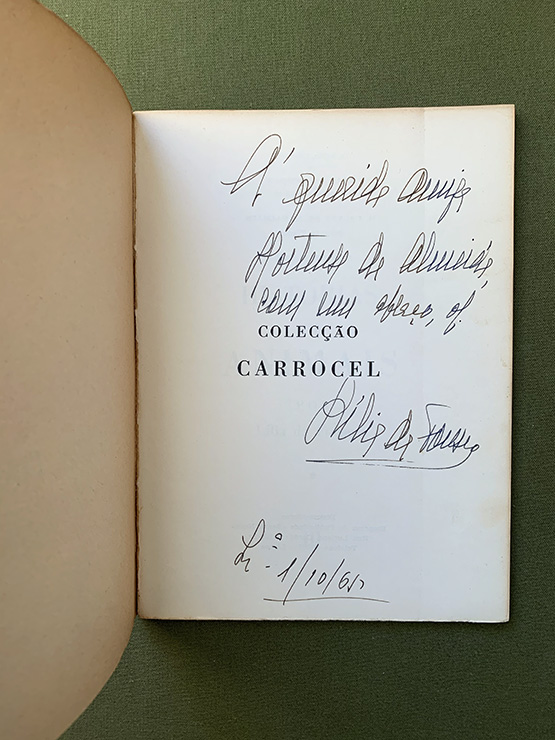 À querida amiga
Hortense de Almeida,
com um abraço, of.
COLECÇÃO
CARROCEL
Lília da Fonseca
Lx.ª 1/10/65